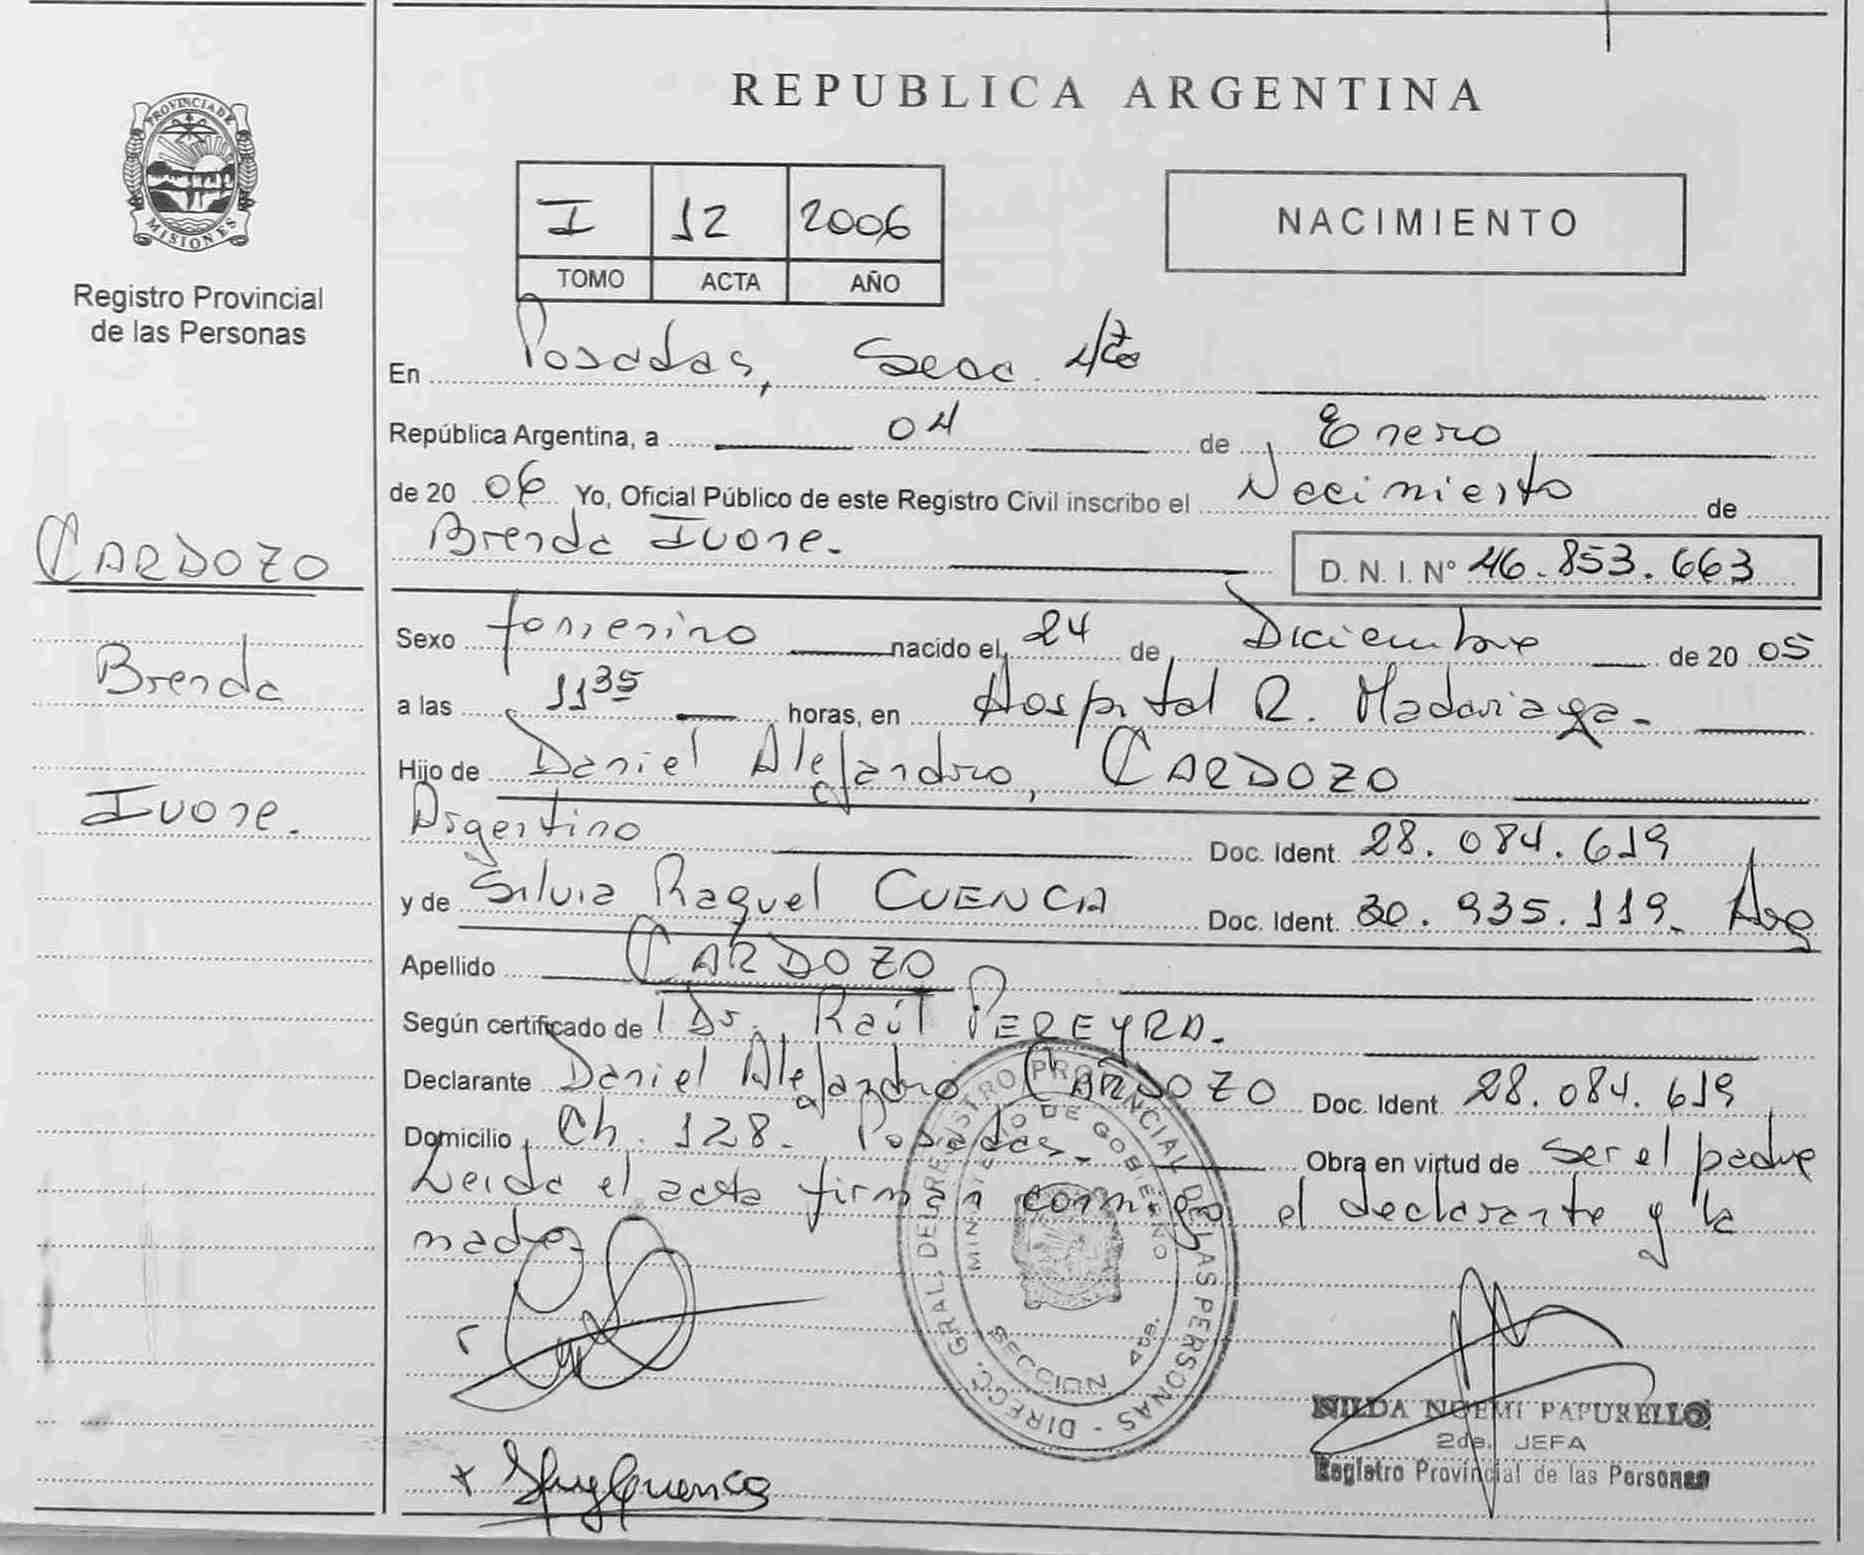 REPUBLICA ARGENTINA
PROVINCIA DE
MISIONES
Registro Provincial
de las Personas
I 12 2006
TOMO ACTA AÑO
NACIMIENTO
En Posadas, Secc. 4ta
República Argentina, a 04 de Enero
de 20 06 Yo, Oficial Público de este Registro Civil inscribo el Nacimiento de
Brenda Ivone.
D. N. I. N° 46.853.663
CARDOZO
Brenda
Ivone.
Sexo femenino nacido el 24 de Diciembre de 20 05
a las 11 35 horas, en Hospital R. Madariaga-
Hijo de Daniel Alejandro, CARDOZO
Argentino Doc. Ident. 28.084.619
y de Silvia Raquel CUENCA Doc. Ident. 30.935.119- Arg
Apellido CARDOZO
Según certificado de Dr. Raúl PEREYRA-
Declarante Daniel Alejandro CARDOZO Doc. Ident 28.084.619
Domicilio Ch. 128- Posadas- Obra en virtud de ser el padre
Leída el acta firman conmigo el declarante y la
madre
DIRECC. GRAL. DEL REGISTRO PROVINCIAL DE LAS PERSONAS -
MINISTERIO DE GOBIERNO
SECCION 4ta.
NILDA NOEMI PAPURELLO
2da. JEFA
Registro Provincial de las Personas